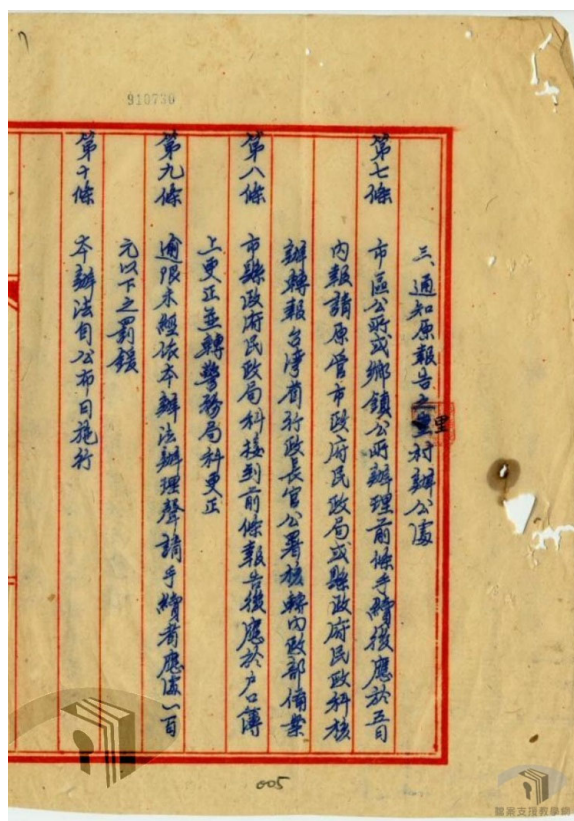 910730
三、通知原報告之里村辦公處
第七條 市區公所或鄉鎮公所辦理前條手續後應於五日
內報請原管市政府民政局或縣政府民政科核
辦轉報台湾省行政長官公署核轉內政部備案
第八條 市縣政府民政局科接到前條報告後應於户口簿
上更正並轉警務局科更正
第九條 逾限未經依本辦法辦理聲請手續者應處一百
元以下之罰鍰
第十條 本辦法自公布日施行
005
檔案支援教學網